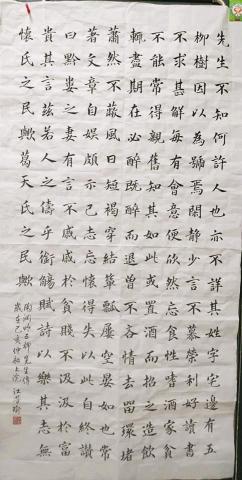 先生不知何許人也亦不詳其姓字宅邊有五
柳樹因以為號焉閑靜少言不慕榮利好讀書
不求甚解每有會意便欣然忘食性嗜酒家貧
不能常得親舊知其如此或置酒而招之造飲
輒盡期在必醉既醉而退曾不吝情去留環堵
蕭然不蔽風日短褐穿結簞瓢屢空晏如也常
著文章自娛頗示己志忘懷得失以此自終贊
曰黔婁之妻有言不戚戚於貧賤不汲汲於富
貴其言茲若人之儔乎銜觴賦詩以樂其志無
懷氏之民歟葛天氏之民歟
陶淵明五柳先生傳
歲在己亥仲秋上浣